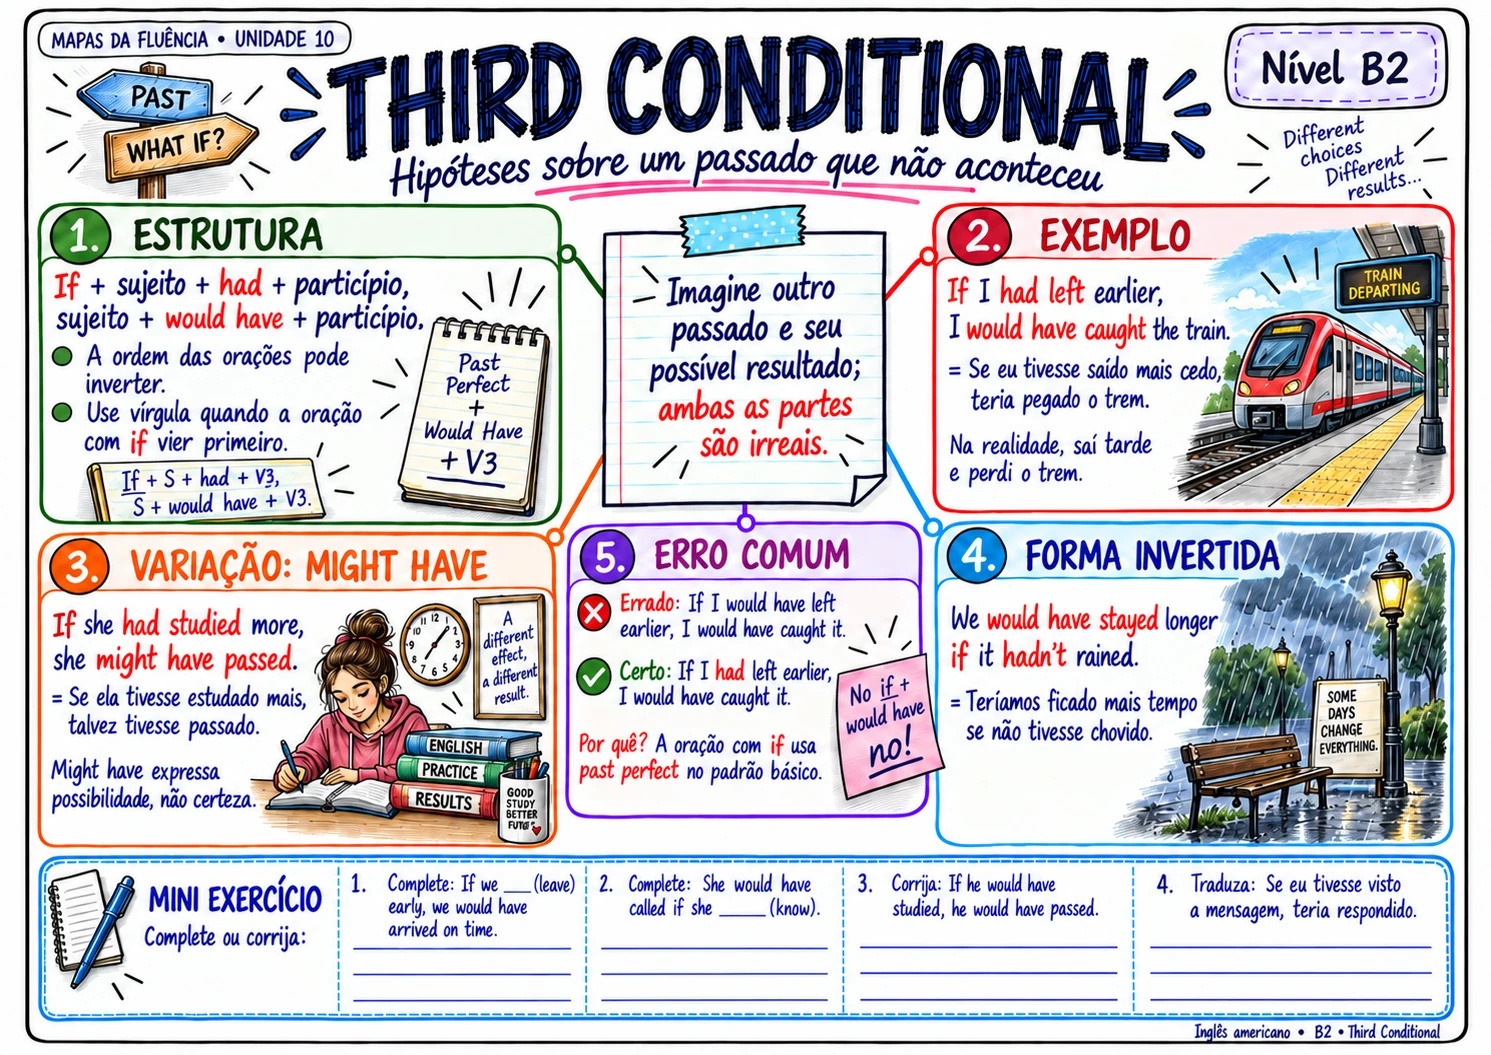 MAPAS DA FLUÊNCIA • UNIDADE 10
PAST
WHAT IF?
THIRD CONDITIONAL
Hipóteses sobre um passado que não aconteceu
Nível B2
Different
choices
Different
results...
1. ESTRUTURA
If + sujeito + had + particípio,
sujeito + would have + particípio.
A ordem das orações pode
inverter.
Use vírgula quando a oração
com if vier primeiro.
If + S + had + V3,
S + would have + V3.
Past
Perfect
+
Would Have
+ V3
Imagine outro
passado e seu
possível resultado;
ambas as partes
são irreais.
2. EXEMPLO
If I had left earlier,
I would have caught the train.
= Se eu tivesse saído mais cedo,
teria pegado o trem.
Na realidade, saí tarde
e perdi o trem.
TRAIN
DEPARTING
3. VARIAÇÃO: MIGHT HAVE
If she had studied more,
she might have passed.
= Se ela tivesse estudado mais,
talvez tivesse passado.
Might have expressa
possibilidade, não certeza.
12 1 2 3 4 5 6 7 8 9 10 11
A
different
effect,
a different
result.
ENGLISH
PRACTICE
RESULTS
GOOD
STUDY
BETTER
5. ERRO COMUM
Errado: If I would have left
earlier, I would have caught it.
Certo: If I had left earlier,
I would have caught it.
Por quê? A oração com if usa
past perfect no padrão básico.
No if +
would have
no!
4. FORMA INVERTIDA
We would have stayed longer
if it hadn't rained.
= Teríamos ficado mais tempo
se não tivesse chovido.
SOME
DAYS
CHANGE
EVERYTHING.
MINI EXERCÍCIO
Complete ou corrija:
1. Complete: If we ___ (leave)
early, we would have
arrived on time.
2. Complete: She would have
called if she _____ (know).
3. Corrija: If he would have
studied, he would have passed.
4. Traduza: Se eu tivesse visto
a mensagem, teria respondido.
Inglês americano • B2 • Third Conditional